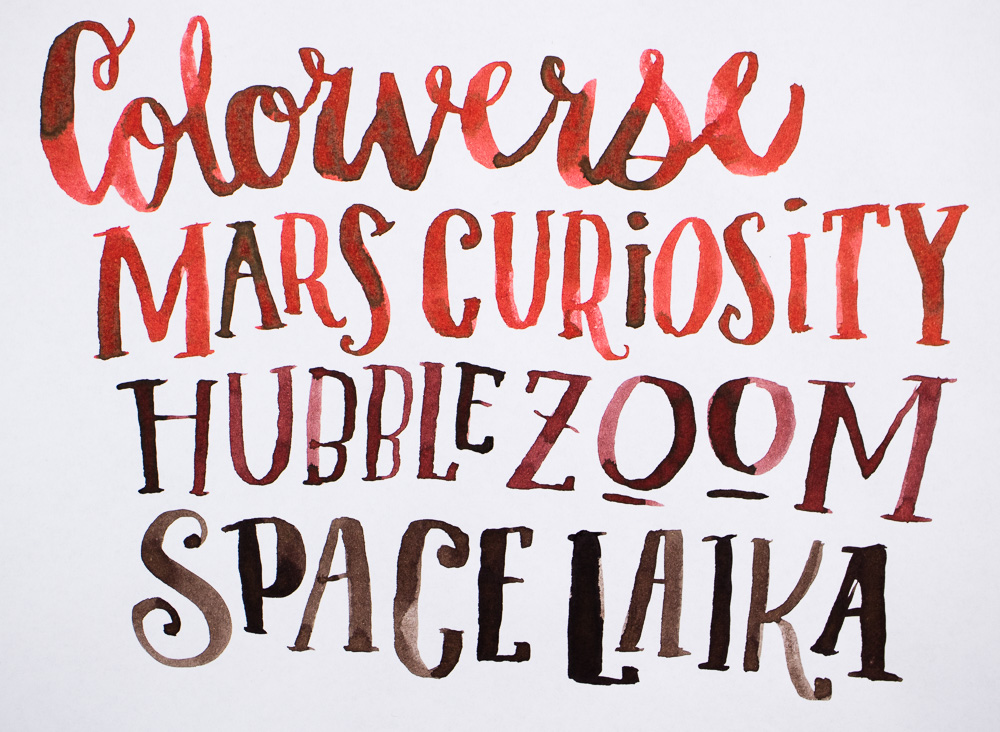 Colorverse
MARS CURiOSiTY
HUBBLE ZOOM
SPACE LAIKA